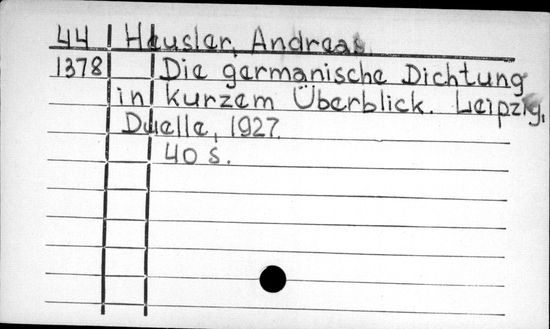 44 Heusler, Andreas
1378 Die germanische Dichtung
in kurzem Überblick. Leipzig,
Duelle, 1927.
40 s.